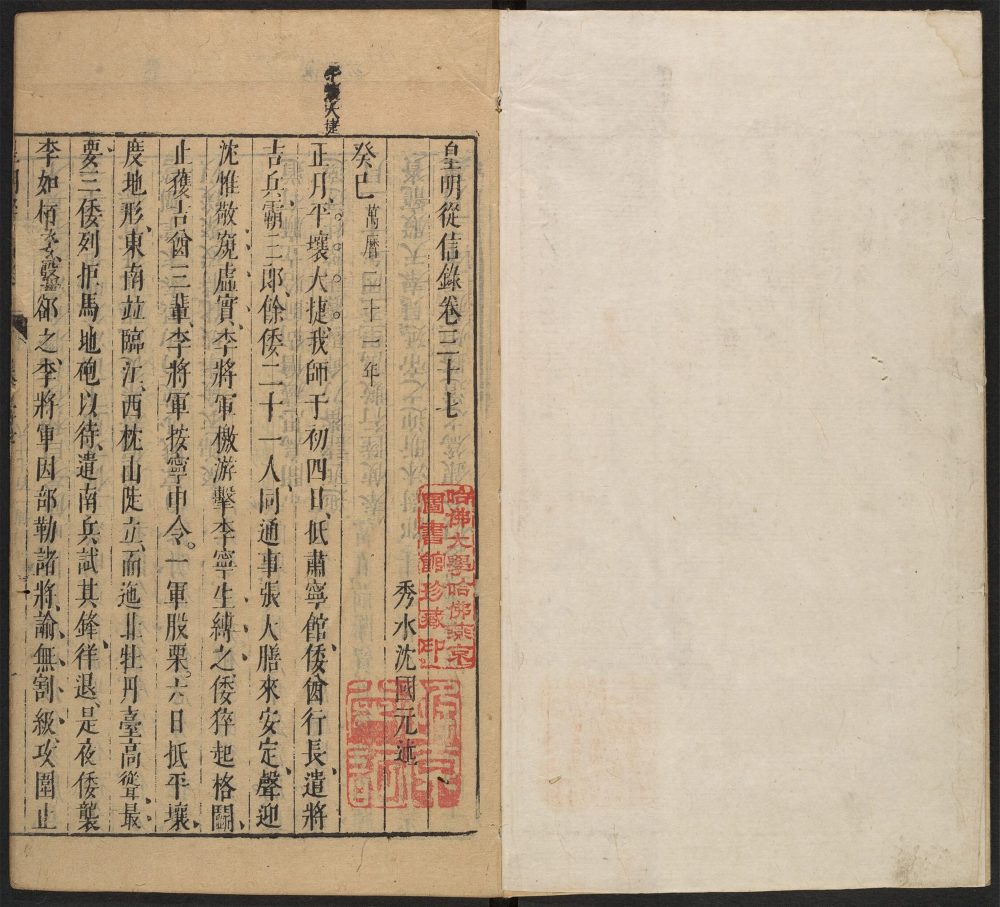 平壤大捷
皇明從信錄卷三十七
秀水沈國元述
哈佛大學哈佛燕京
圖書館珍藏印
癸巳萬曆二十一年
正月平壤大捷我師于初四日、低肅寧館、倭酋行長、遣將
吉兵、霸三郎、餘倭二十一人同通事張大膳來安定、聲迎
沈惟敬、窺虛實、李將軍檄游擊李寧生縛之、倭猝起格鬪、
止獲吉酋三輩、李將軍按寧申令。一軍股栗。六日抵平壤、
度地形、東南並臨江、西枕山陡立、而迤北牡丹臺高聳、最
要三倭列拒馬地砲以待、遣南兵試其鋒、徉退、是夜倭襲
李如栢營、擊郤之、李將軍因部勒諸將、諭無割級、攻圍止